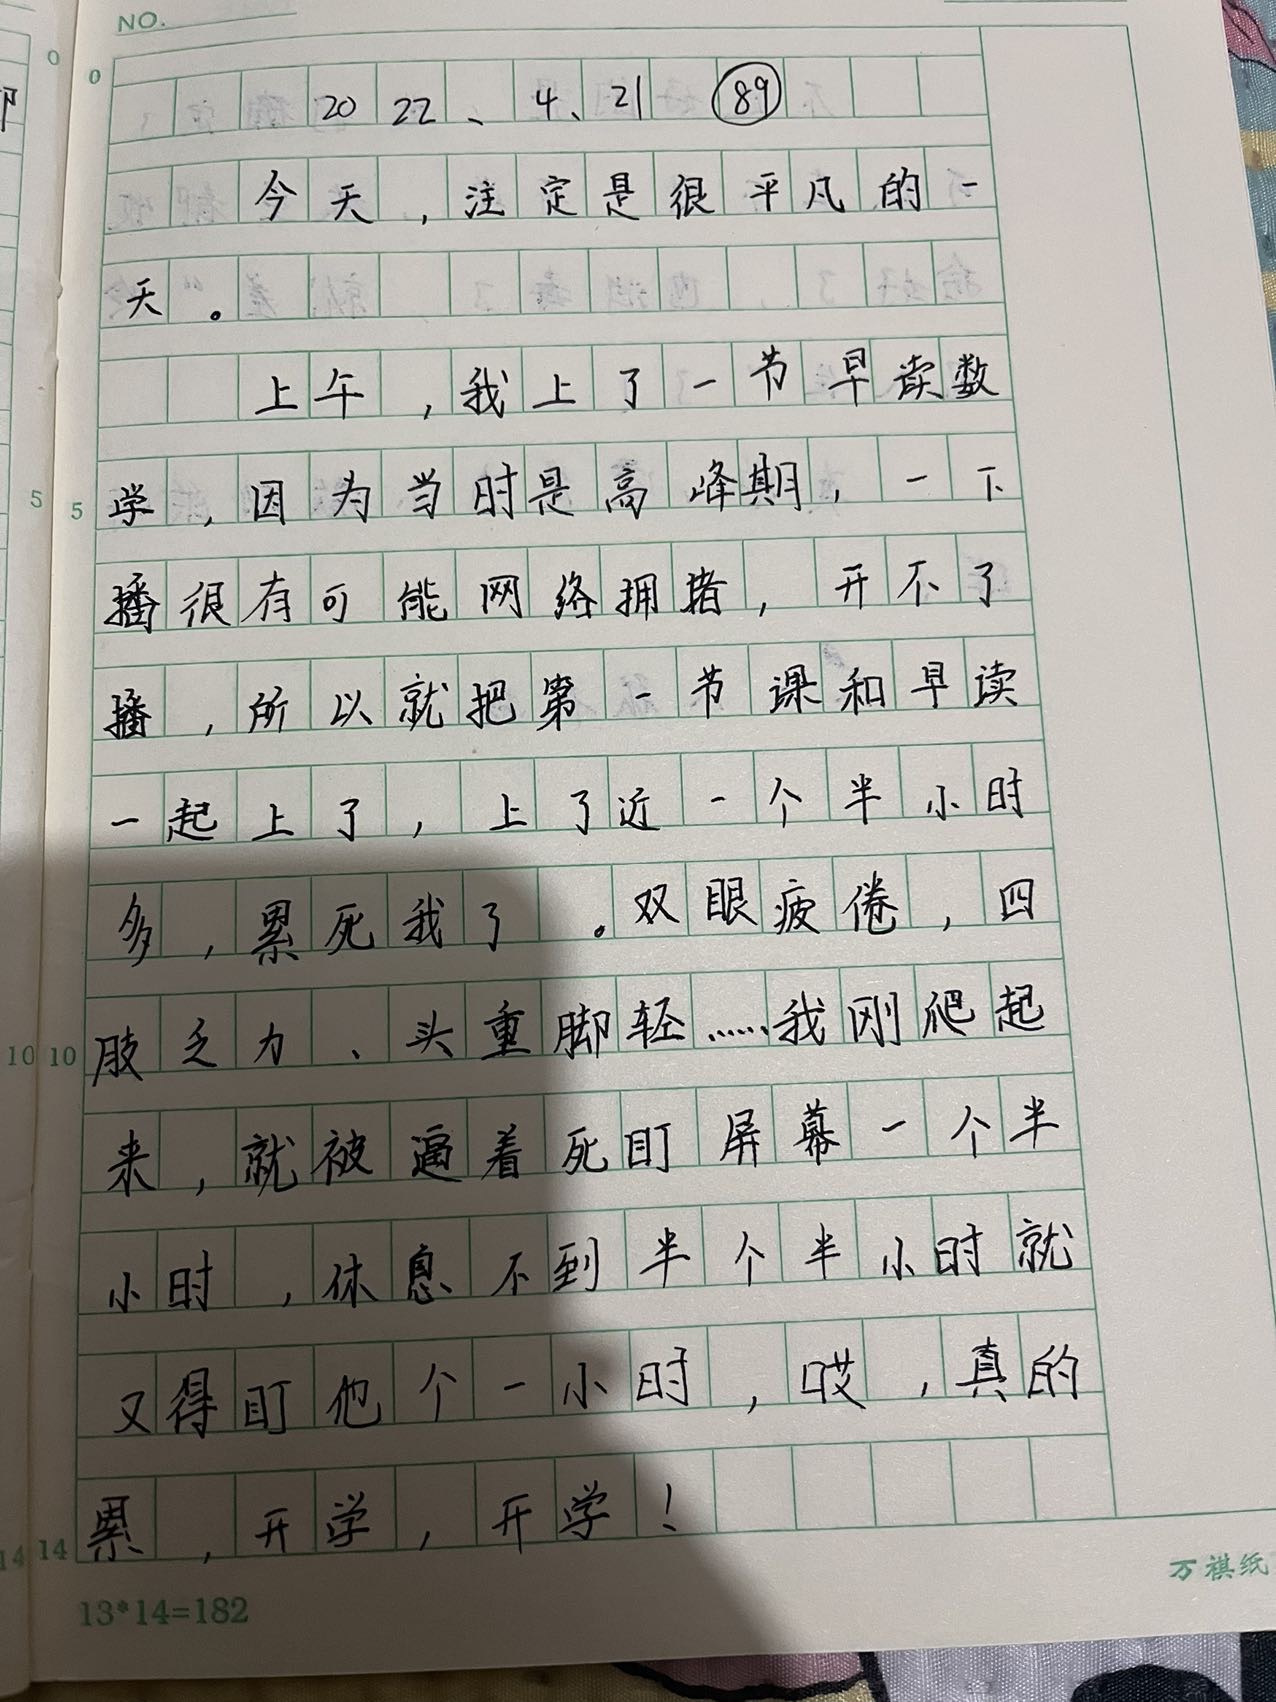 NO.
2022、4、21 89
今天，注定是很平凡的一
天。
上午，我上了一节早读数
学，因为当时是高峰期，一下
播很有可能网络拥堵，开不了
播，所以就把第一节课和早读
一起上了，上了近一个半小时
多，累死我了。双眼疲倦，四
肢乏力、头重脚轻……我刚爬起
来，就被逼着死盯屏幕一个半
小时，休息不到半个半小时就
又得盯他个一小时，哎，真的
累，开学，开学！
0
0
5
5
10
10
14
14
13*14=182
万祺纸